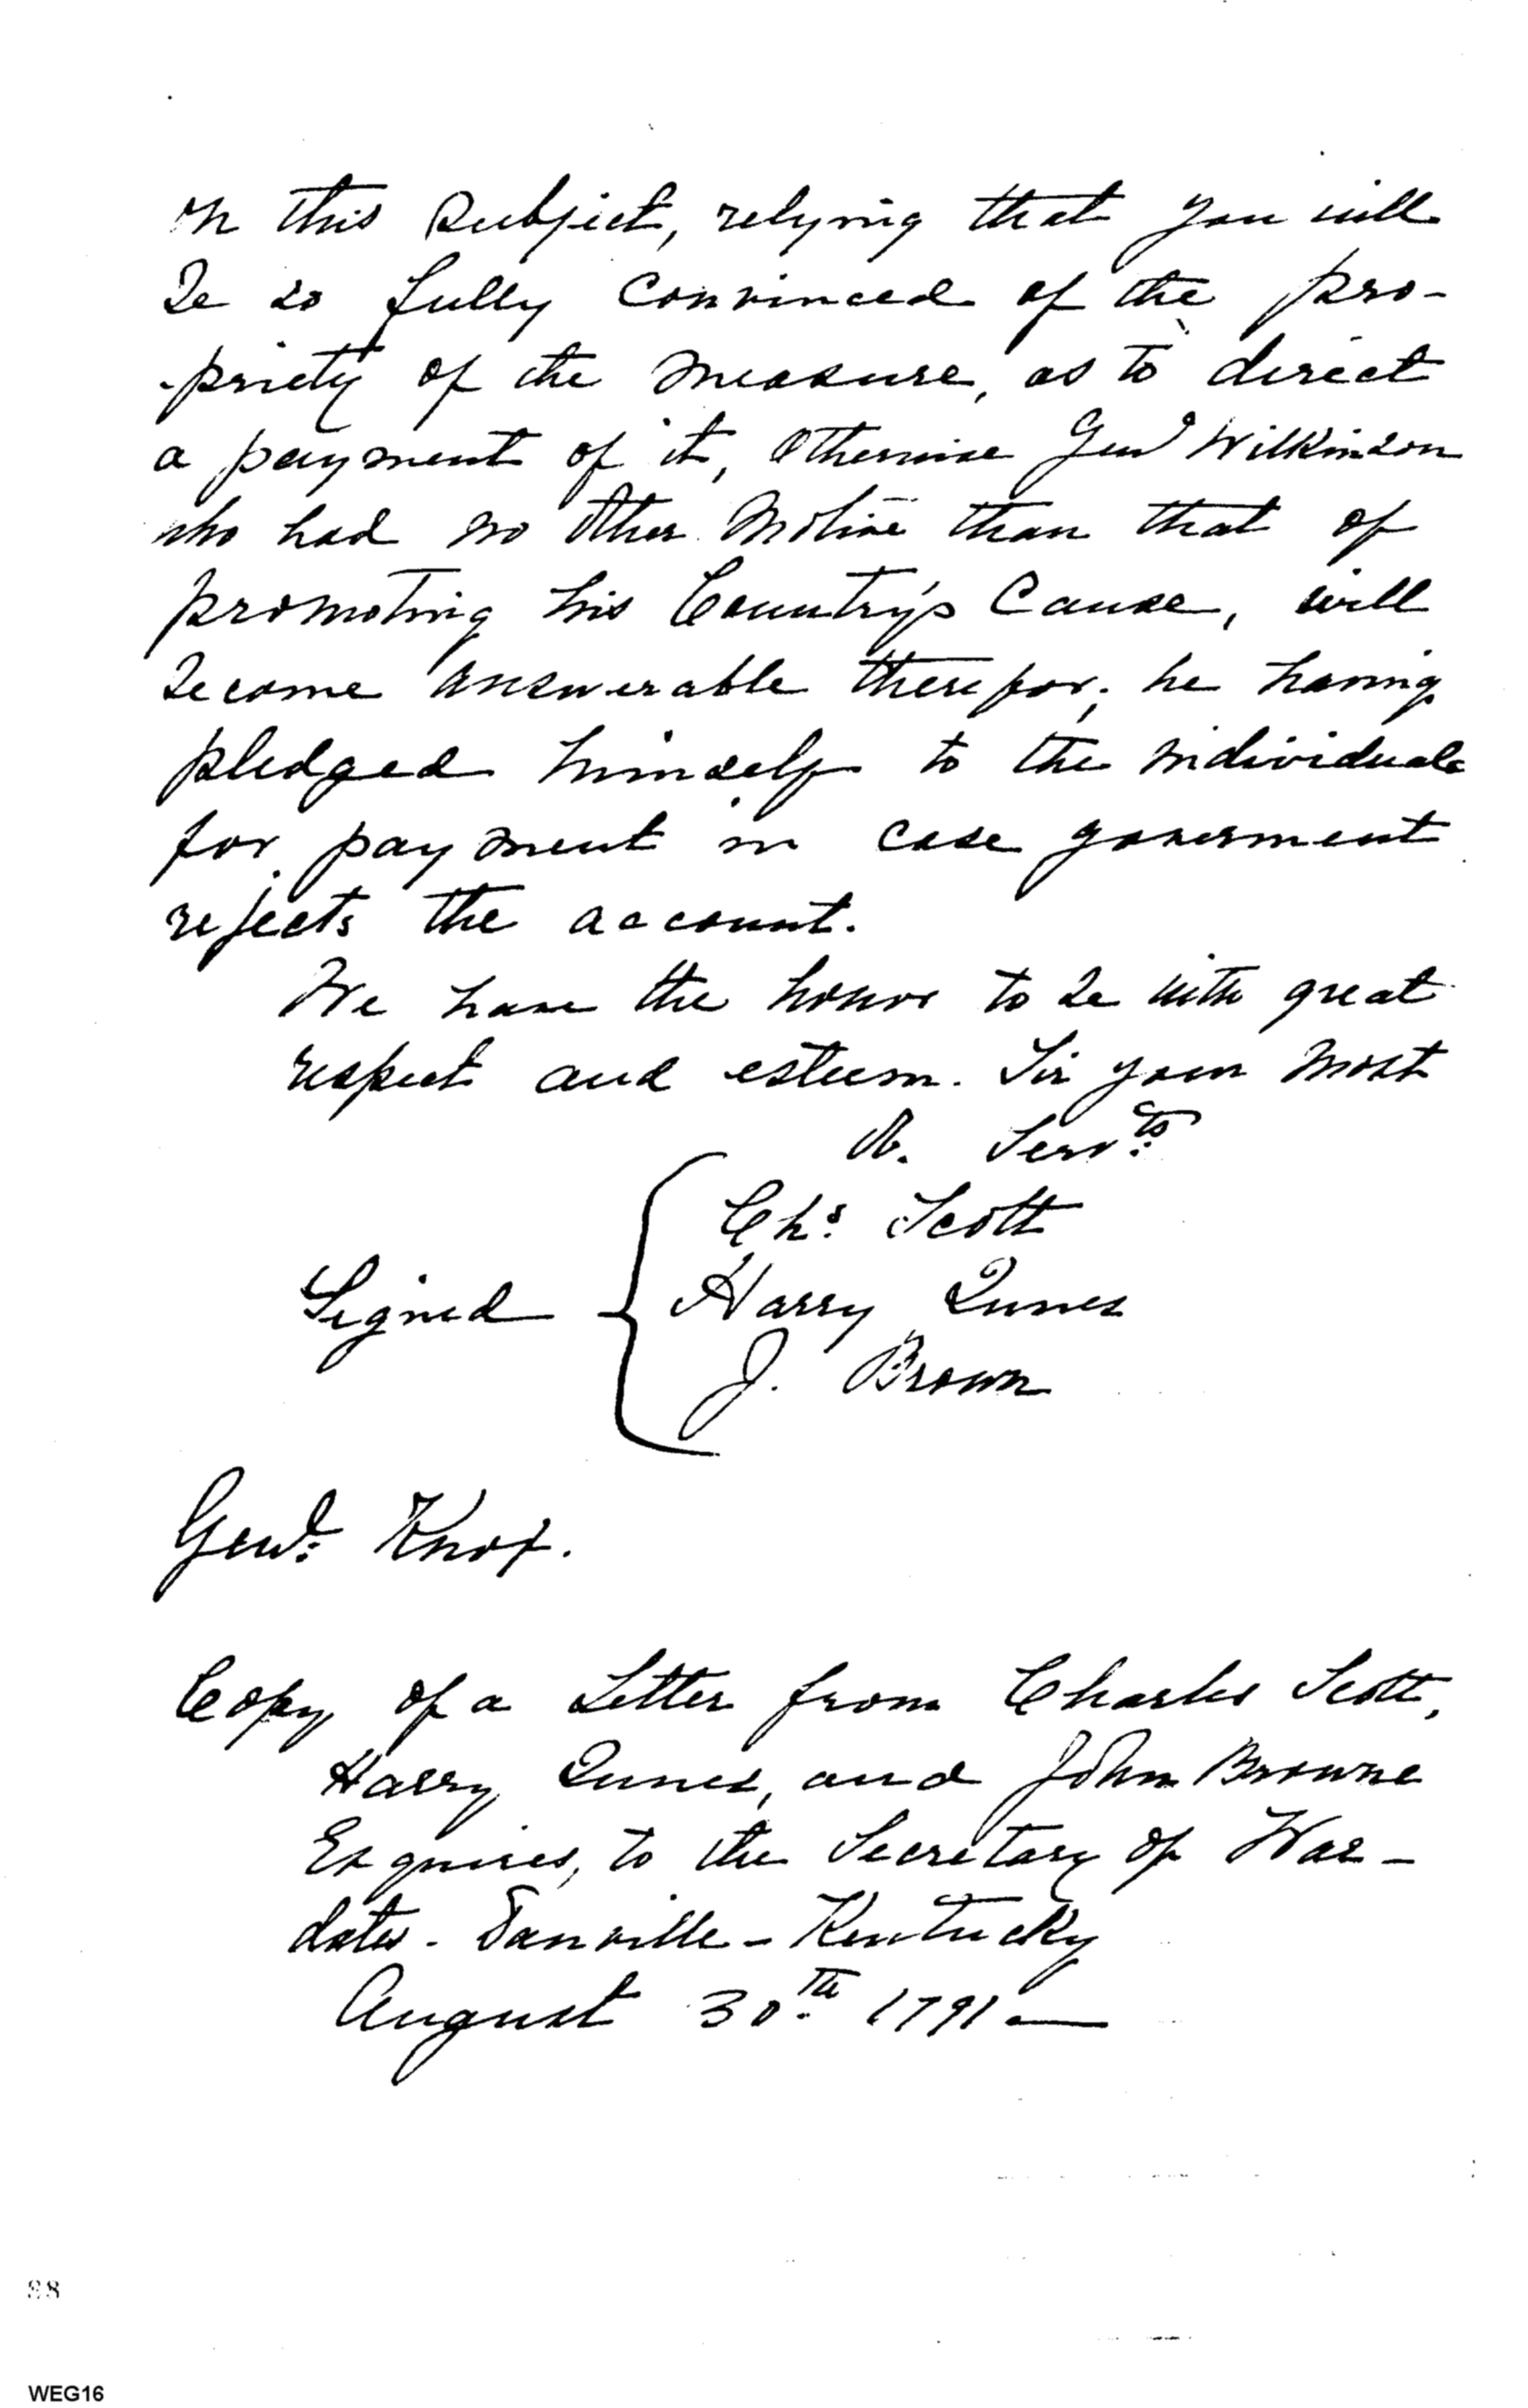 on this subject, relying that you will
be so fully convinced of the pro-
-priety of the measure, as to direct
a payment of it, otherwise Genl Wilkinson
who had no other motive than that of
promoting his Country's Cause, will
become answerable therefor; he having
pledged himself to the individuals
for payment in case goverment
rejects the account.
We have the honor to be with great
respect and esteem. Sir your most
O. Servts.
Chs. Scott
Signed { Harry Innes
J. Brown
Genl. Knox.
Copy of a Letter from Charles Scott,
Harry Innes, and John Browne
Esquires, to the Secretary of War -
dated - Danville - Kentucky
August 30th. 1791 -
88
WEG16